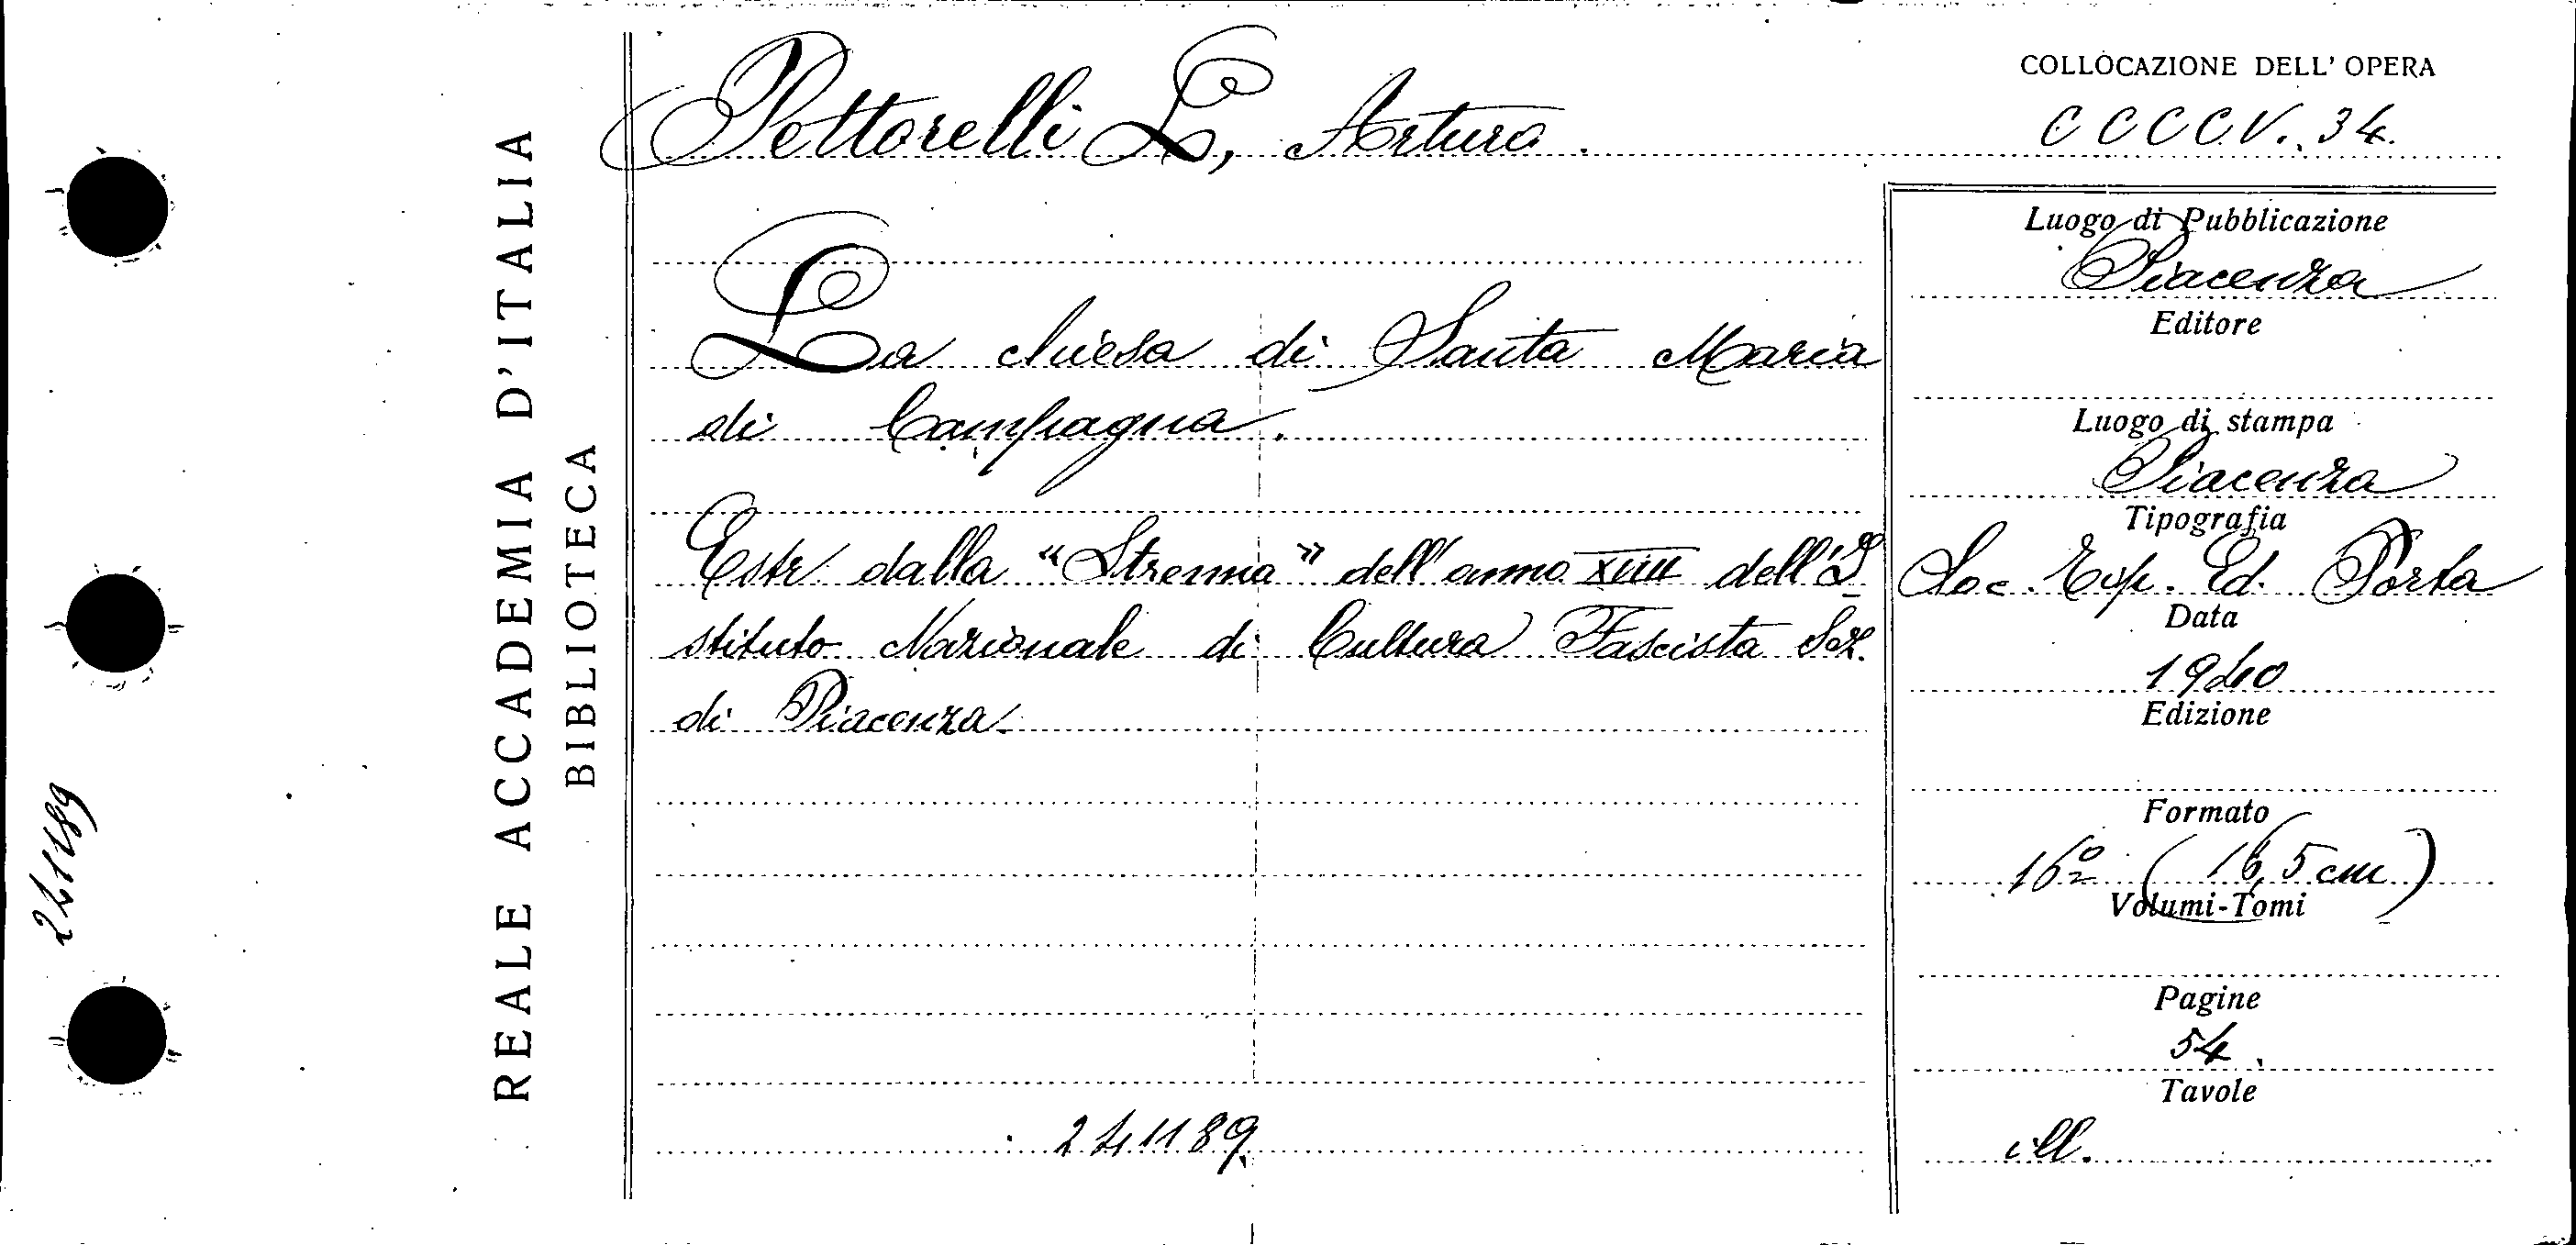 REALE ACCADEMIA D'ITALIA
BIBLIOTECA
Pettorelli L, Arturo.
La chiesa di Santa Maria
di Campagna.
Estr. dalla "Strenna" dell'anno XVIII dell'I
stituto Nazionale di Cultura Fascista Sez.
di Piacenza.
241189
COLLOCAZIONE DELL' OPERA
CCCCV. 34.
Luogo di Pubblicazione
Piacenza
Editore
Luogo di stampa
Piacenza
Tipografia
Soc. Tip. Ed. Porta
Data
1940
Edizione
Formato
16º (16,5 cm)
Volumi-Tomi
Pagine
54.
Tavole
ill.
241189